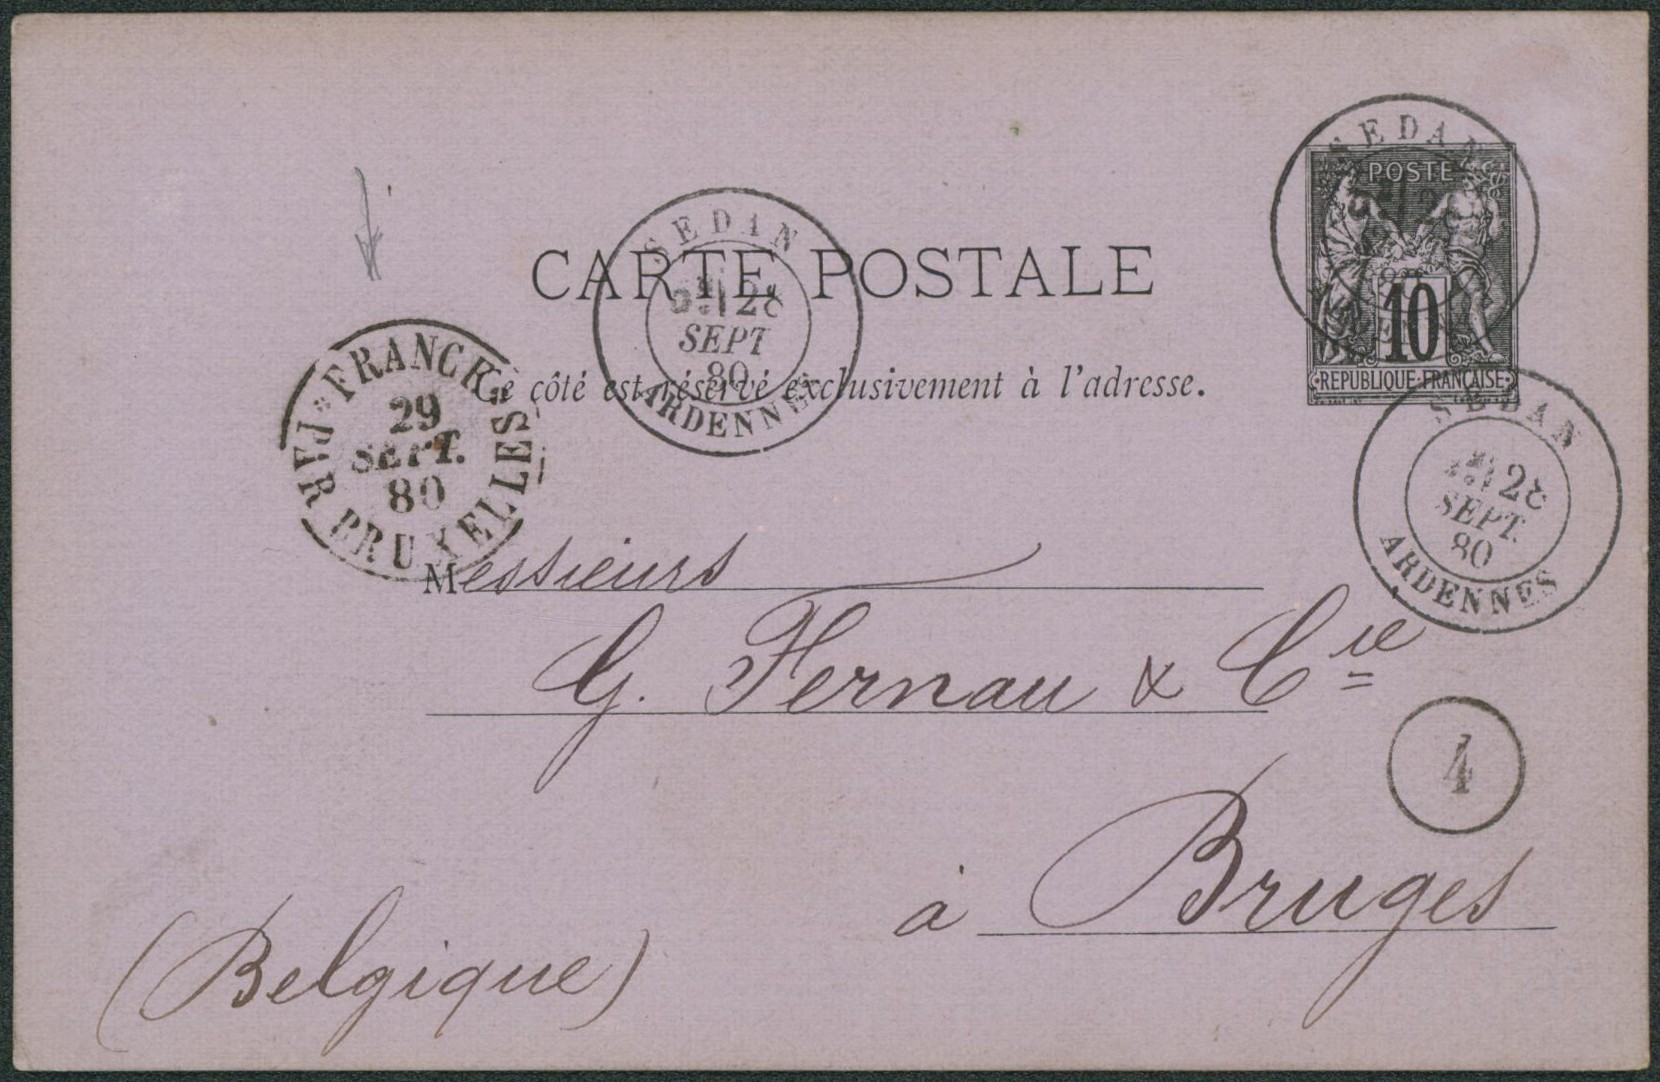 SEDAN
POSTE
10
REPUBLIQUE FRANÇAISE
SEDAN
28
SEPT
80
ARDENNES
CARTE POSTALE
Ce côté est réservé exclusivement à l'adresse.
FRANCE
29
SEPT.
80
BRUXELLES
SEDAN
28
SEPT.
80
ARDENNES
Messieurs
G. Fernau & Cie
4
à Bruges
(Belgique)